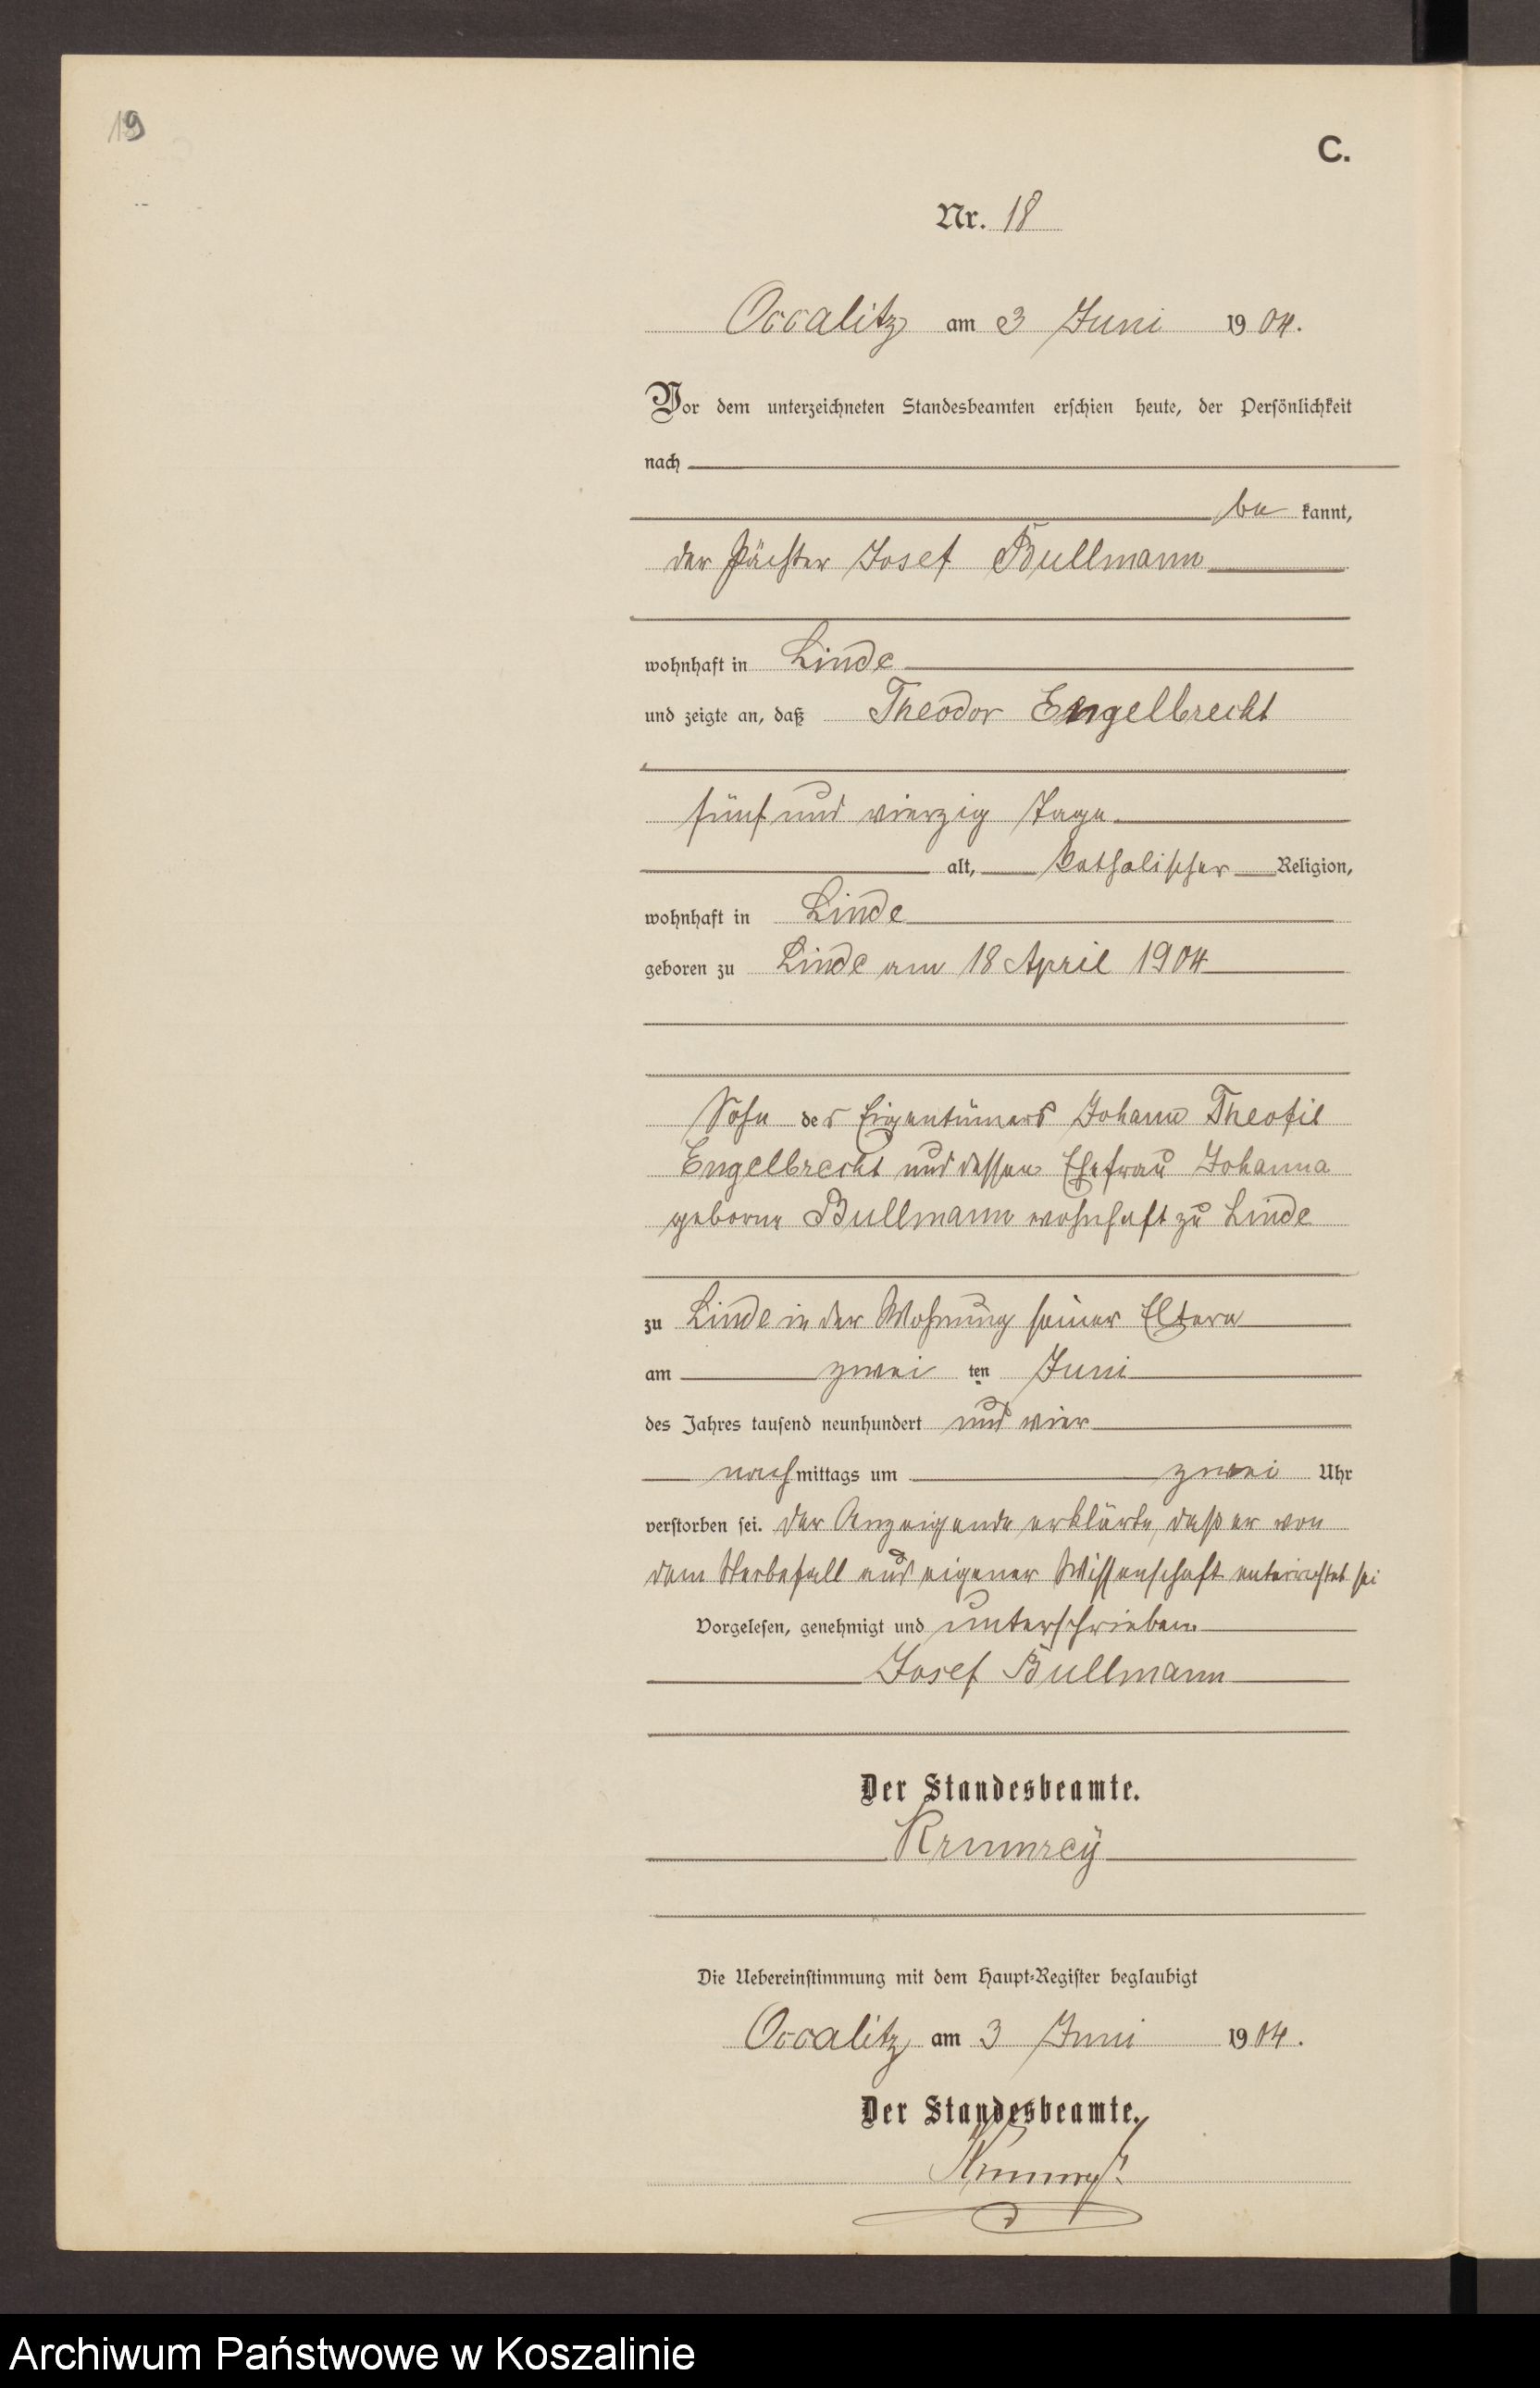 19
C.
Nr. 18
Occalitz am 3 Juni 1904.
Vor dem unterzeichneten Standesbeamten erschien heute, der Persönlichkeit
nach
be kannt,
der Pächter Josef Bullmann
wohnhaft in Linde
und zeigte an, daß Theodor Engelbrecht
fünf und vierzig Tage
alt, katholischer Religion,
wohnhaft in Linde
geboren zu Linde am 18 April 1904
Sohn des Eigentümers Johann Theofil
Engelbrecht und dessen Ehefrau Johanna
geborne Bullmann wohnhaft zu Linde
zu Linde in der Wohnung seiner Eltern
am zwei ten Juni
des Jahres tausend neunhundert und vier
nachmittags um zwei Uhr
verstorben sei. Der Anzeigende erklärte, daß er von
dem Sterbefall aus eigener Wissenschaft unterrichtet sei
Vorgelesen, genehmigt und unterschrieben.
Josef Bullmann
Der Standesbeamte.
Krumrey
Die Uebereinstimmung mit dem Haupt-Register beglaubigt
Occalitz am 3 Juni 1904.
Der Standesbeamte.
Krumrey
Archiwum Państwowe w Koszalinie